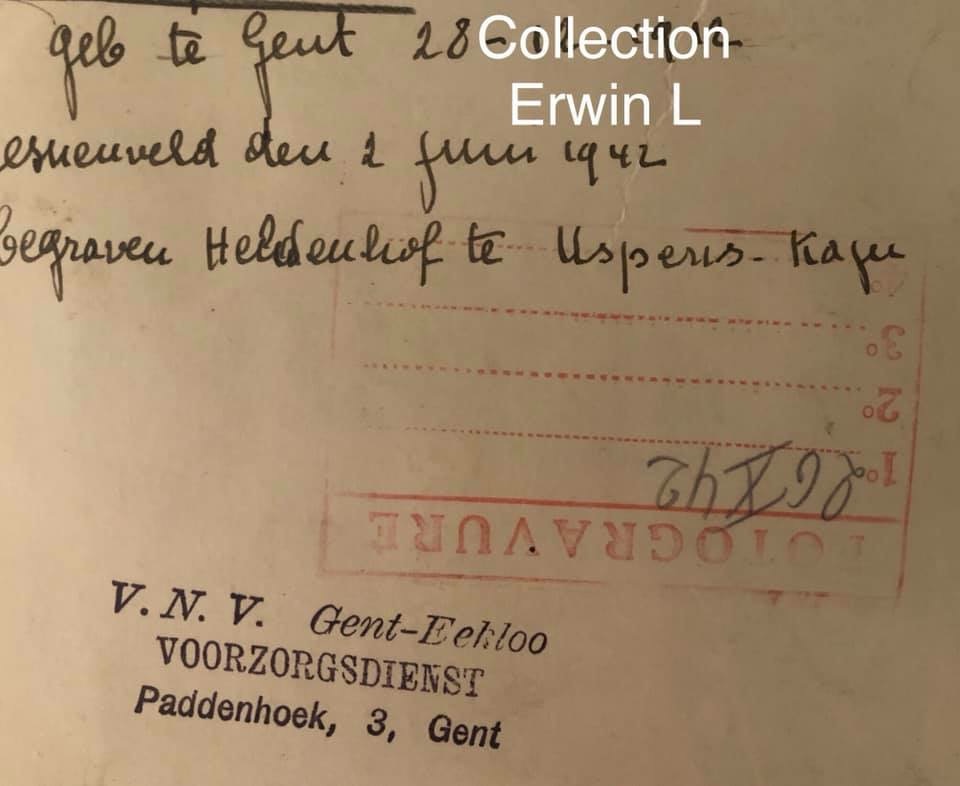 geb te Gent 28-12-1912
Collection
Erwin L
esneuveld den 2 Juni 1942
begraven Heldenhof te Uspens-Kaju
3°
2°
1° 26 X 42
FOTOGRAVURE
V. N. V. Gent-Eekloo
VOORZORGSDIENST
Paddenhoek, 3, Gent